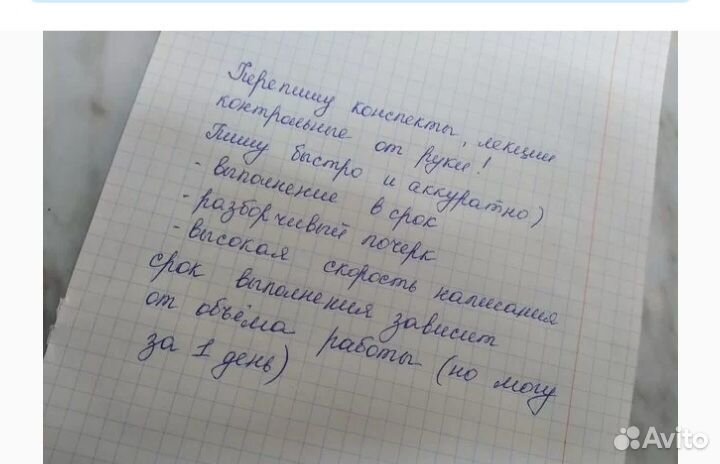 Перепишу конспекты, лекции
контрольные от руки!
Пишу быстро и аккуратно)
- выполнение в срок
- разборчивый почерк
- высокая скорость написания
срок выполнения зависит
от объёма работы (но могу
за 1 день)
Avito